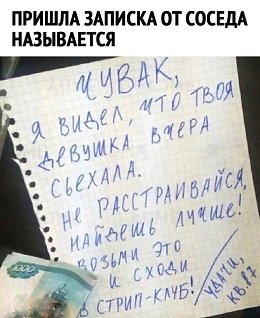 ПРИШЛА ЗАПИСКА ОТ СОСЕДА
НАЗЫВАЕТСЯ
ЧУВАК,
Я ВИДЕЛ, ЧТО ТВОЯ
ДЕВУШКА ВЧЕРА
СЬЕХАЛА.
НЕ РАССТРАИВАЙСЯ,
НАЙДЕШЬ ЛУЧШЕ!
ВОЗЬМИ ЭТО
И СХОДИ
В СТРИП-КЛУБ!
УДАЧИ,
КВ.87
1000